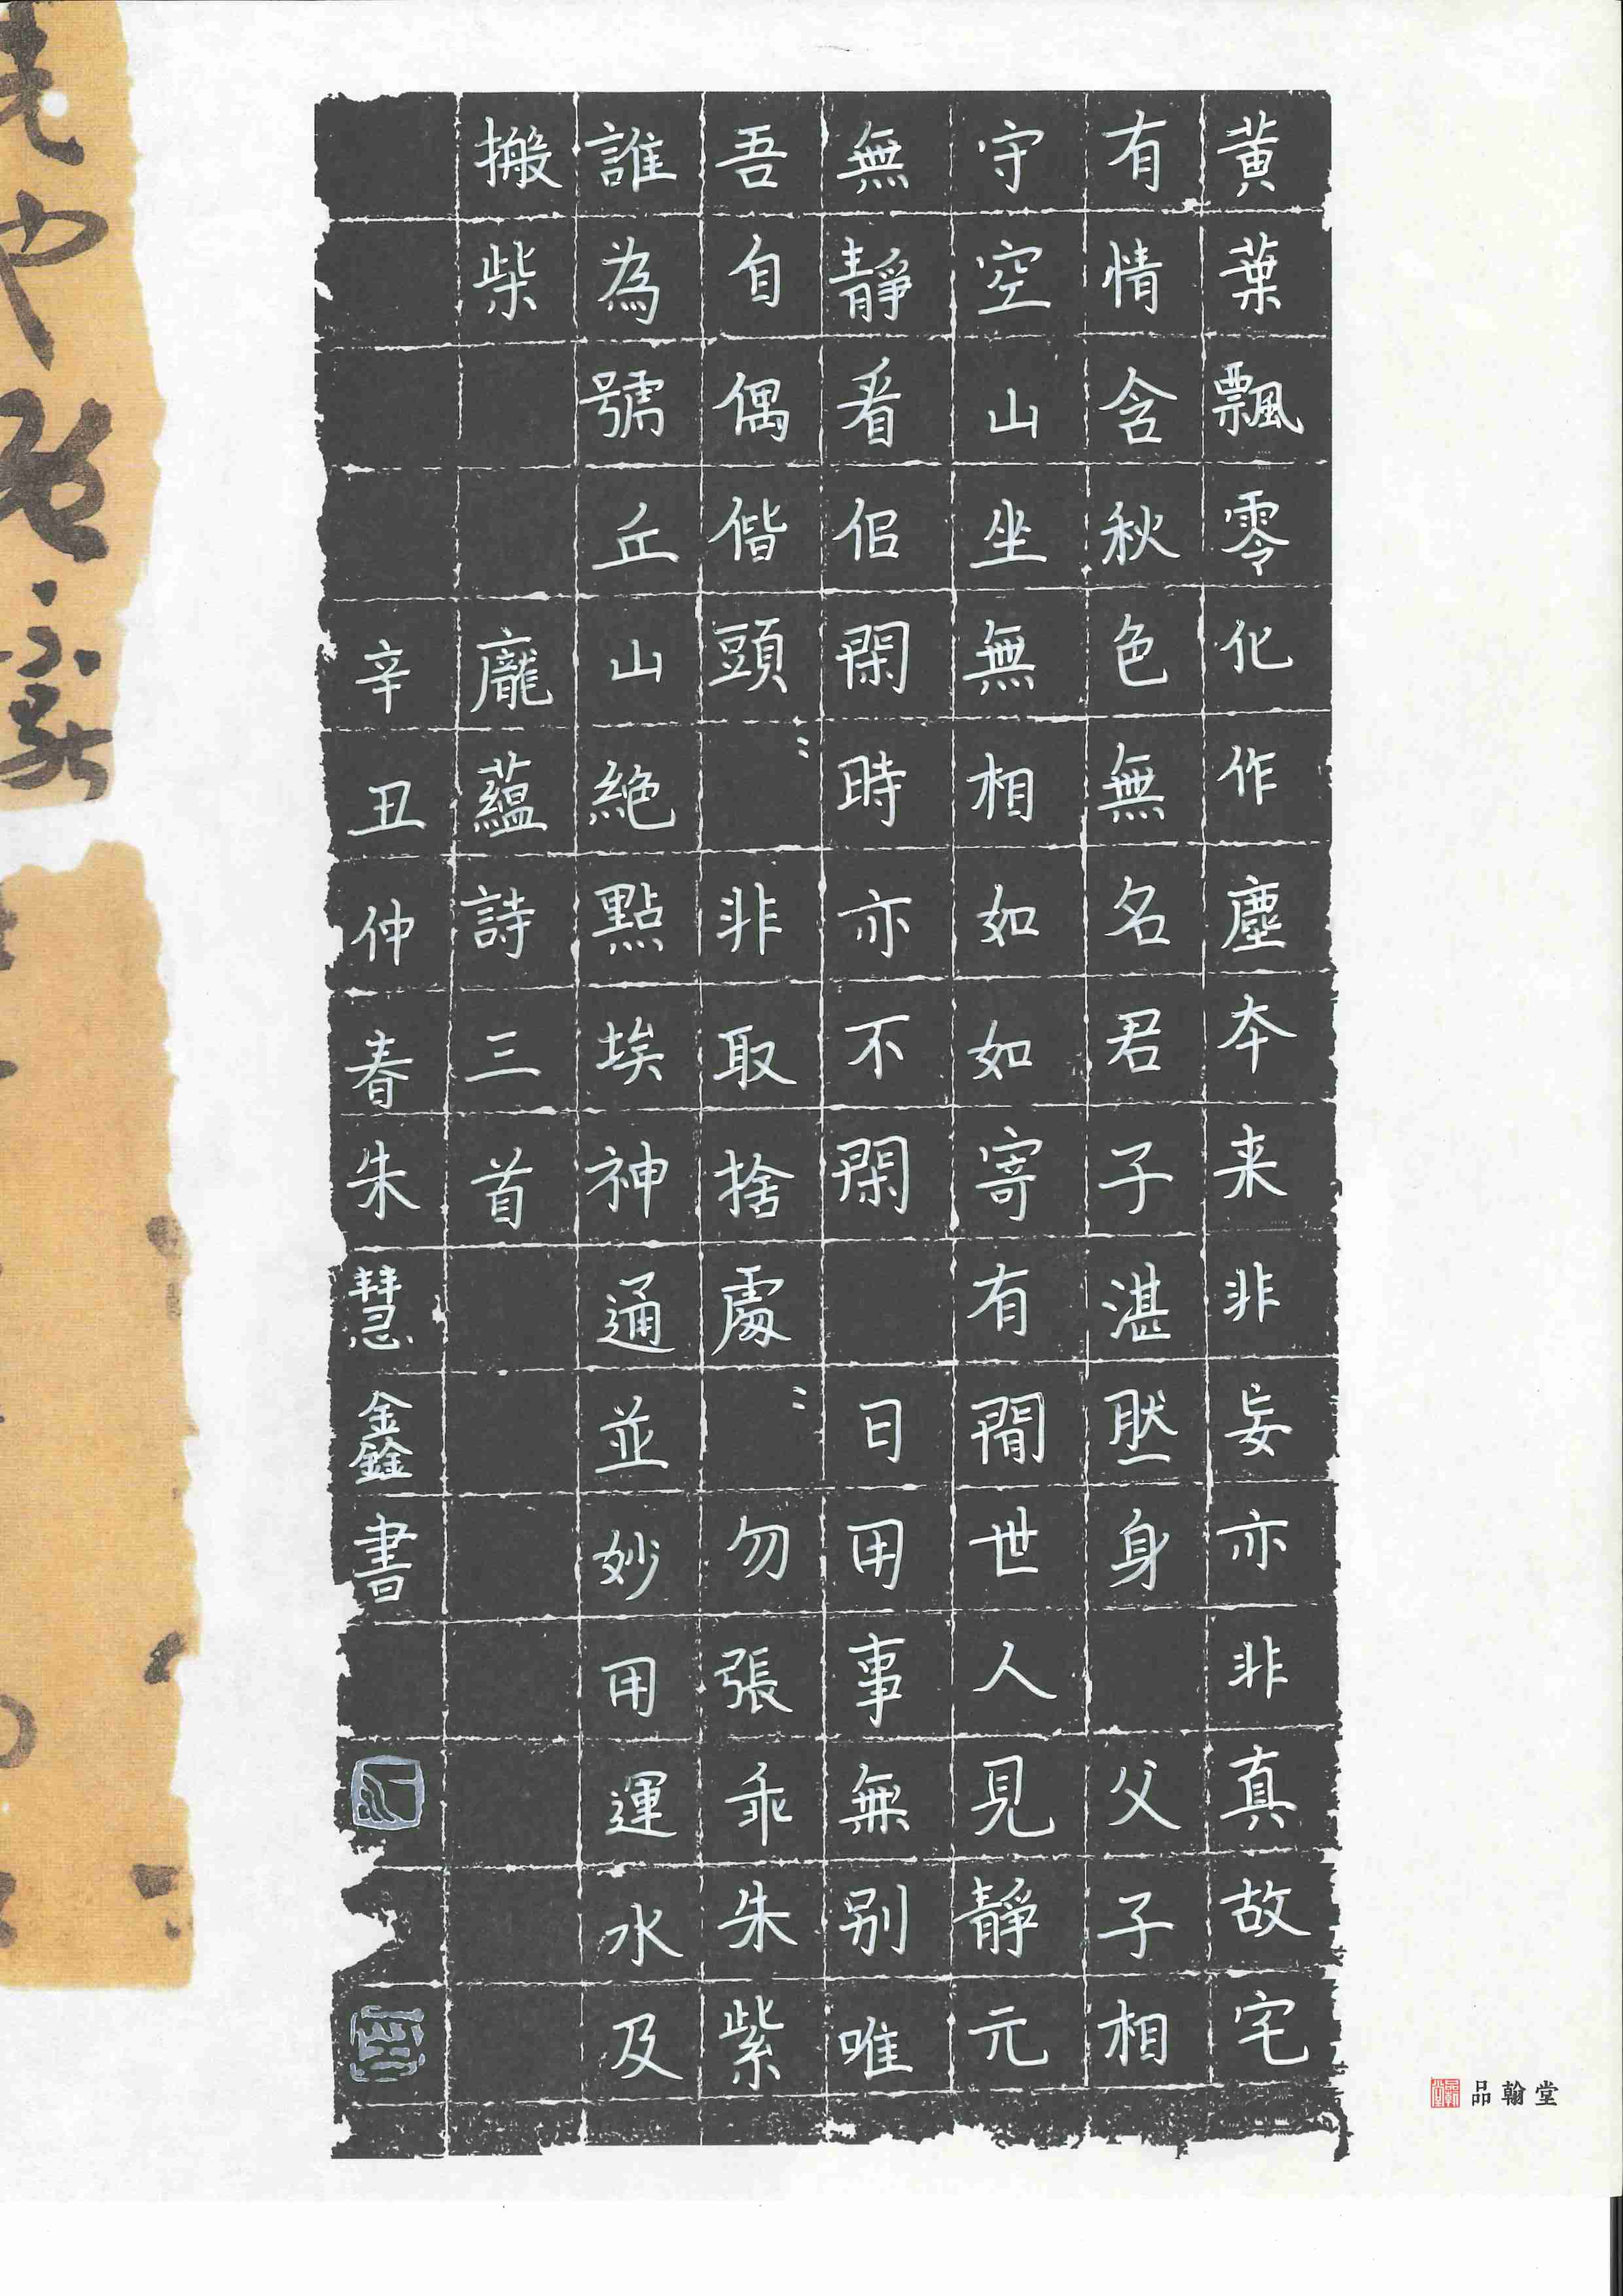 黃葉飄零化作塵本来非妄亦非真故宅
有情含秋色無名君子湛然身父子相
守空山坐無相如如寄有間世人見靜元
無靜看侣閑時亦不閑日用事無别唯
吾自偶偕頭〻非取捨處〻勿張乖朱紫
誰為號丘山絶點埃神通並妙用運水及
搬柴 龐蘊詩三首
辛丑仲春朱慧鑫書
品翰堂